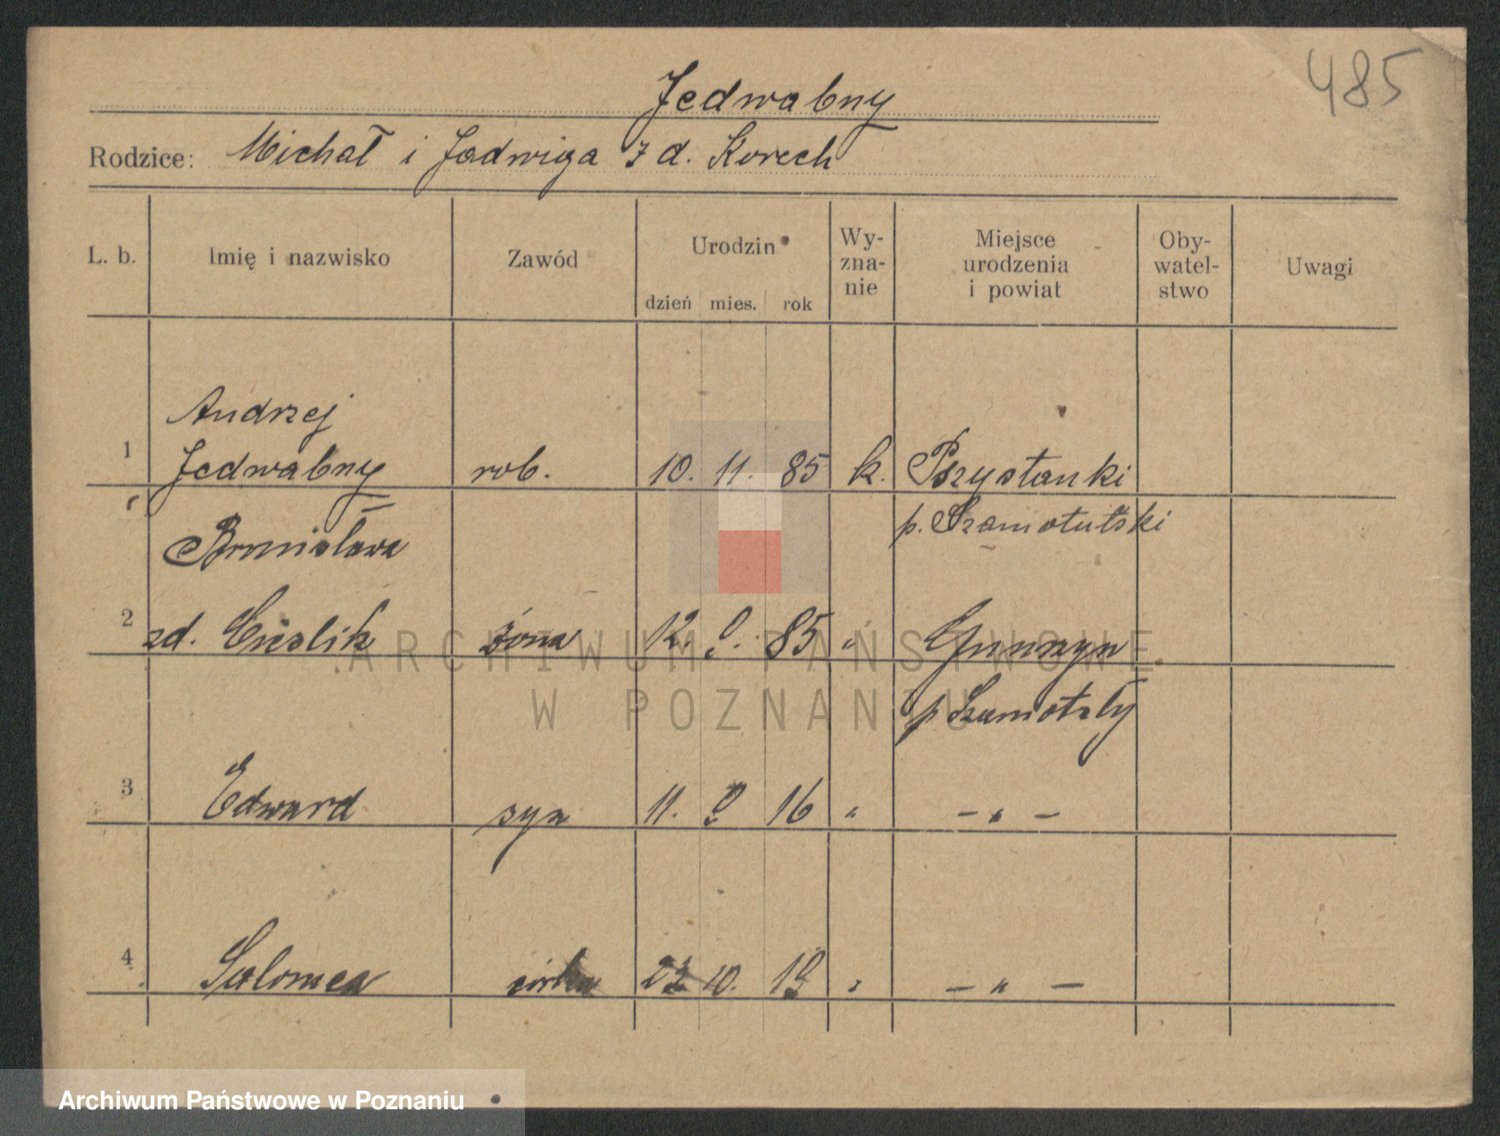 485
Jedwabny
Rodzice: Michał i Jadwiga z d. Korech
L. b. Imię i nazwisko Zawód Urodzin Wy-zna-nie Miejsce urodzenia i powiat Oby-watel-stwo Uwagi
dzień mies. rok
Andrzej
1 Jedwabny rob. 10. 11. 85 k. Przystanki
p. Szamotulski
Bronisława
2 zd. Cieślik żona 12. 9. 85 „
p Szamotuły
3 Edward syn 11. 9. 16 „ – „ –
4 Salomea córka 10. 19 „ – „ –
ARCHIWUM PAŃSTWOWE
W POZNANIU
Archiwum Państwowe w Poznaniu